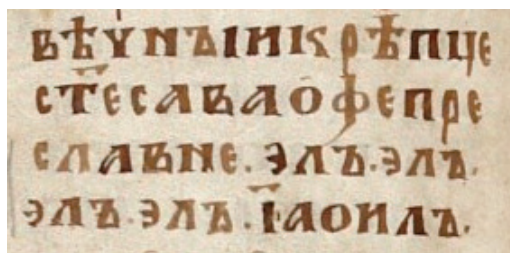 вѣчнъіикрѣпце
ст҃есаваофепре
славне.элъ.элъ.
элъ.элъ.і҃аоилъ.